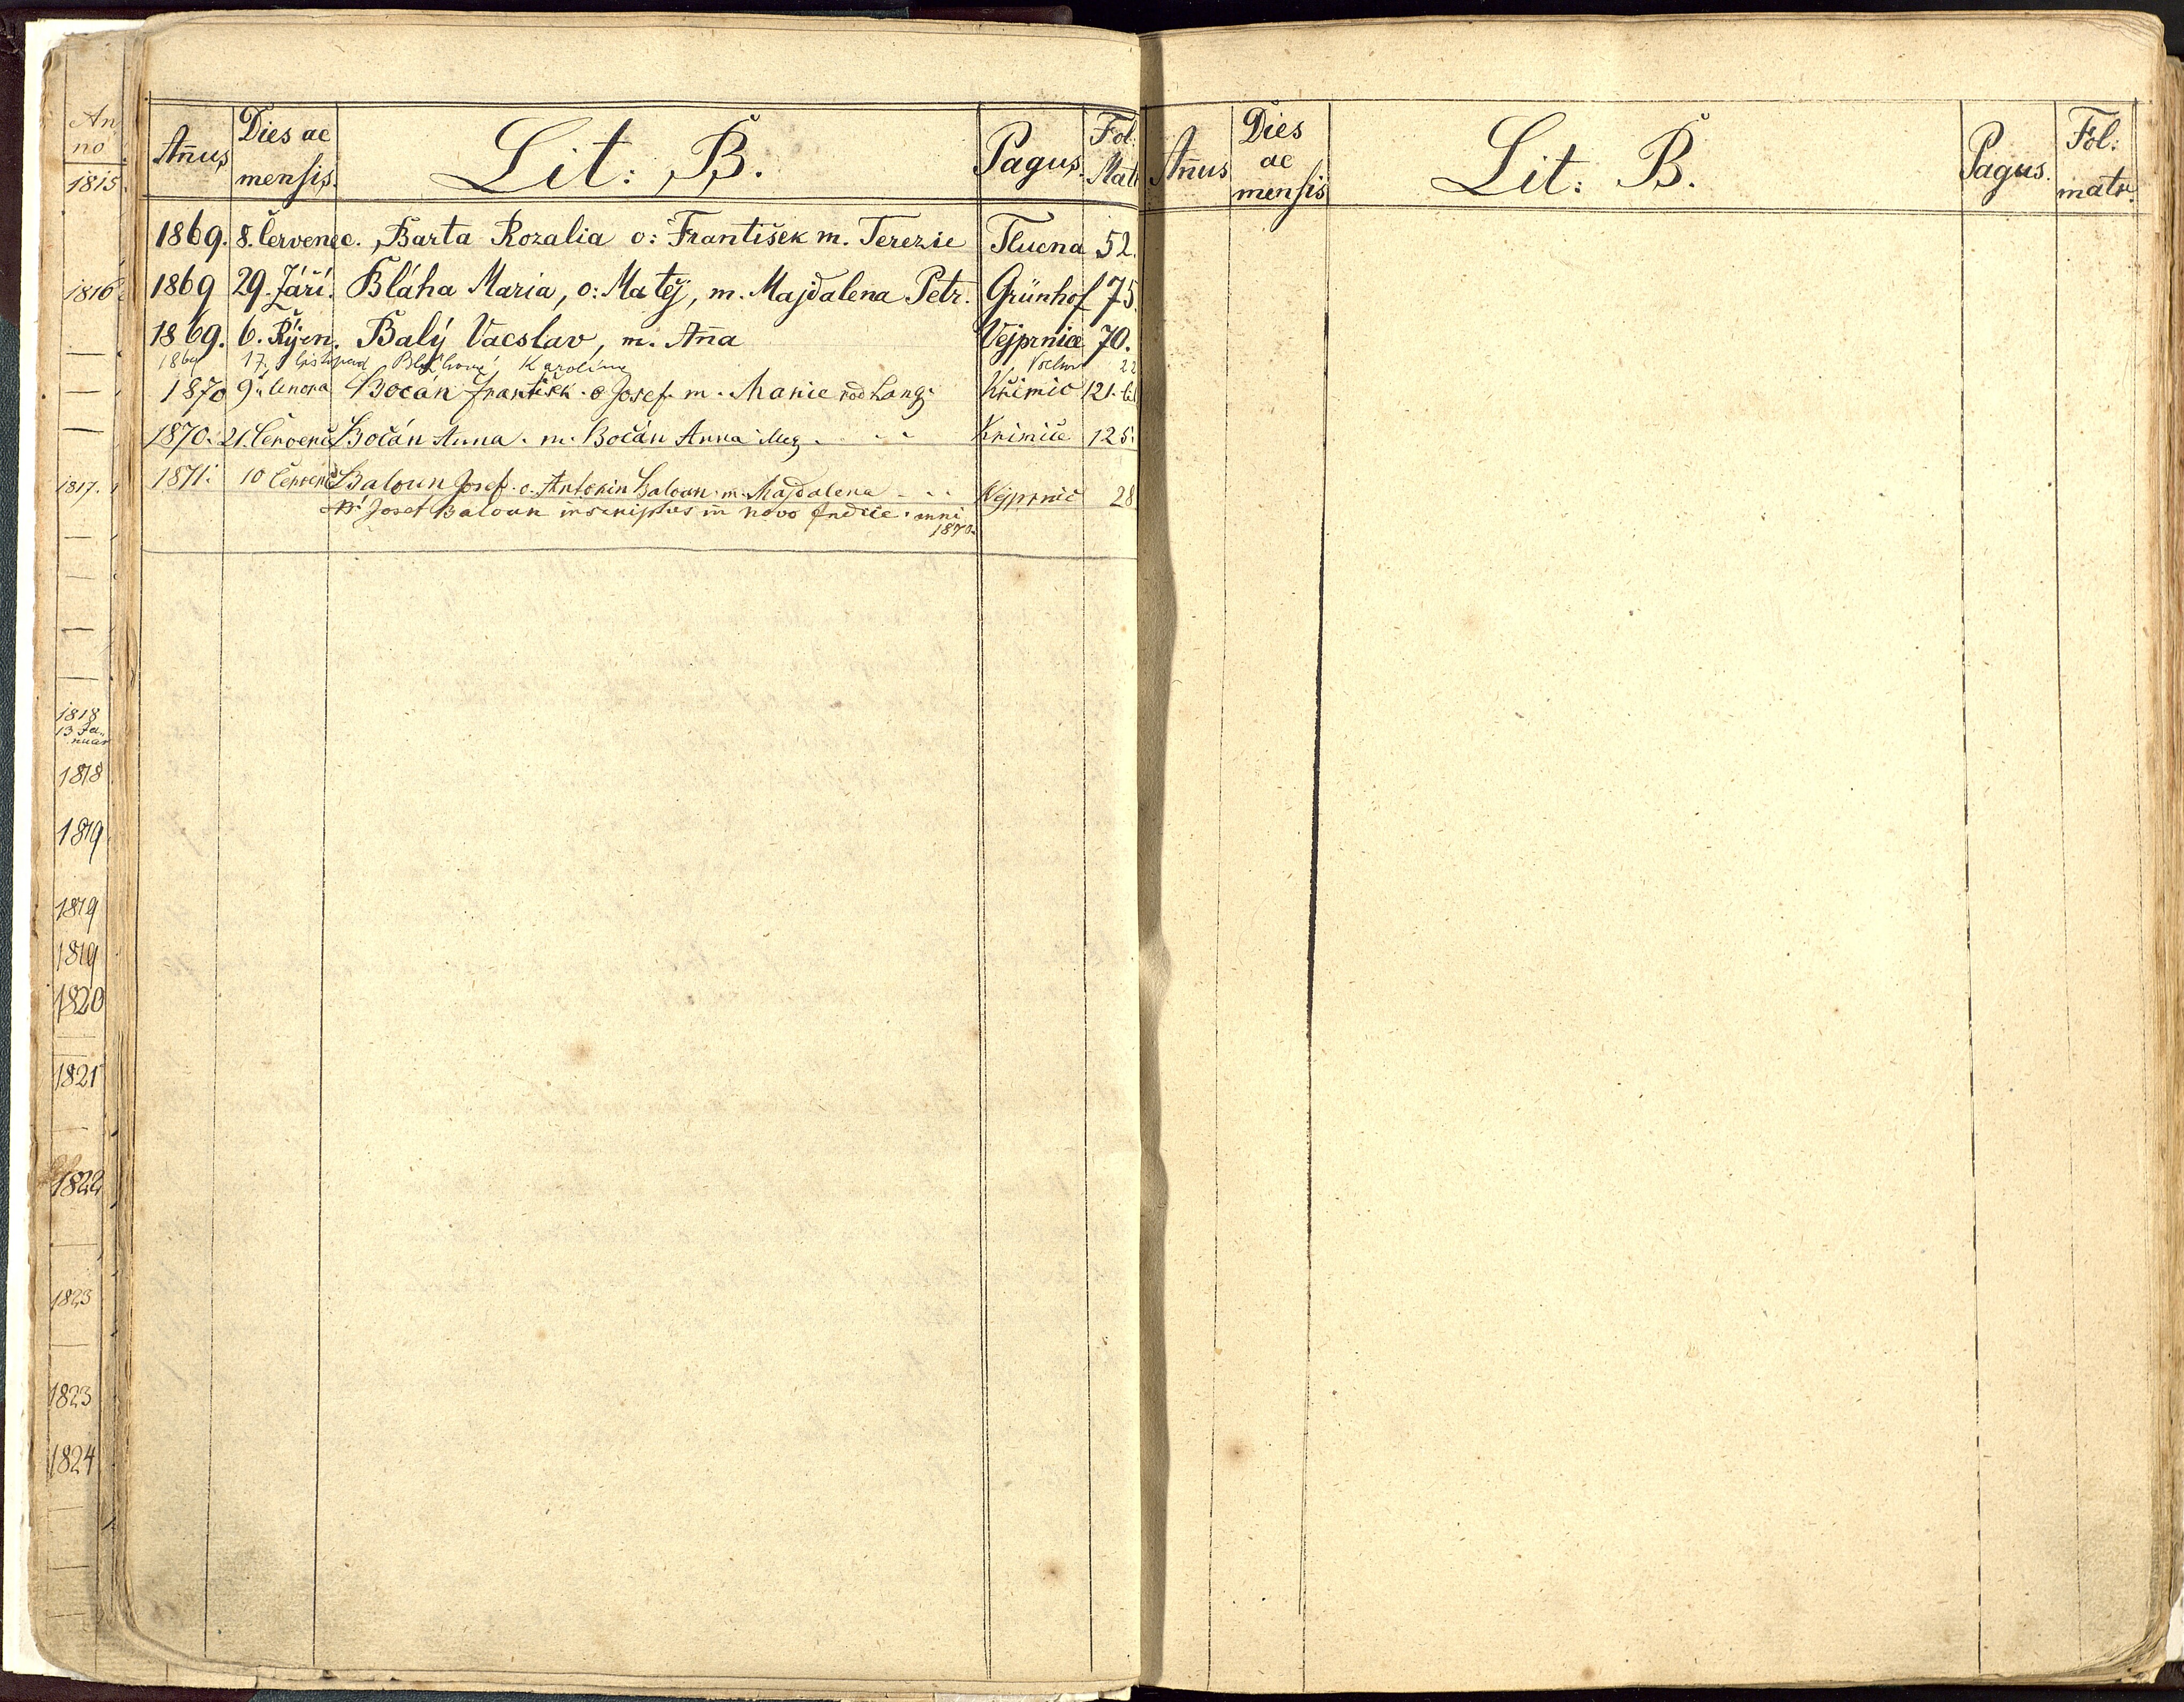 An
no
1815.
1816
1817.
1818
13 Ja-
nuar
1818
1819
1819
1819
1820
1821
1822
1823
1823
1824
Añus Dies ac mensis. Lit: B. Pagus. Fol: Mat
1869. 8. Červenec. Barta Rozalia o: František m. Terezie Tlucna 52.
1869 29. Září. Bláha Maria, o: Matěj, m. Majdalena Petr. Grünhof 75
1869. 6. Říjen. Balý Vacslav, m. Aña Vejprnice 70.
1869 17. listopad Karolina 22
1870 9. února Bočan František o Josef m. Marie rod Lang. Křimic 121.
1870. 21. Červenec Bočán Anna. m. Bočán Anna Křimice 125.
1871. 10 Červenec Baloun Josef o. Antonín Baloun m. Majdalena Vejprnic 28
Josef Baloun inscriptus in novo Indice anni
1870.
Añus Dies ac mensis Lit: B. Pagus. Fol: matr.